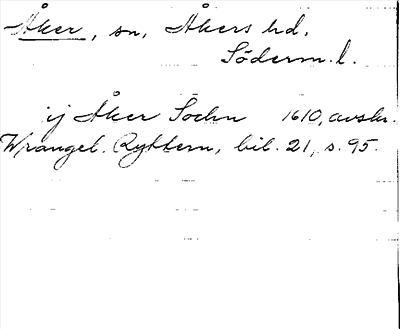 Åker, sn, Åkers hd,
Söderm. l.
ij Åker Sochn 1610, avskr.
Wrangel. Ryttern, bil. 21, s. 95.